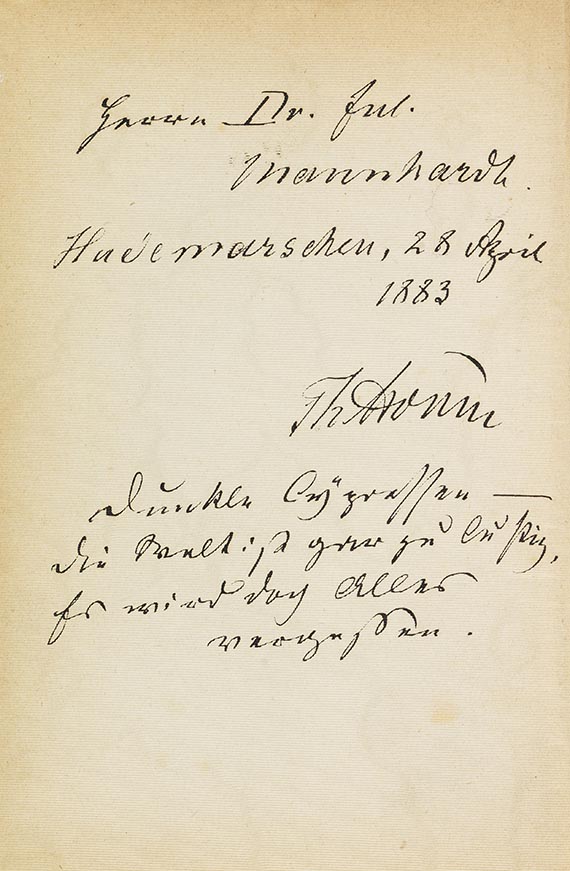 Herrn Dr. Jul.
Mannhardt.
Hademarschen, 28 April
1883
ThStorm
Dunkle Cypressen —
die Welt ist gar zu lustig,
Es wird doch Alles
vergessen.